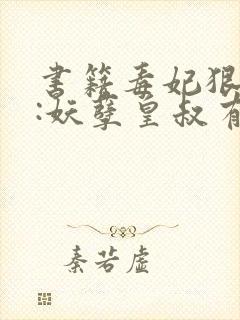 书籍毒妃狠
:妖孽皇叔有
秦若虚